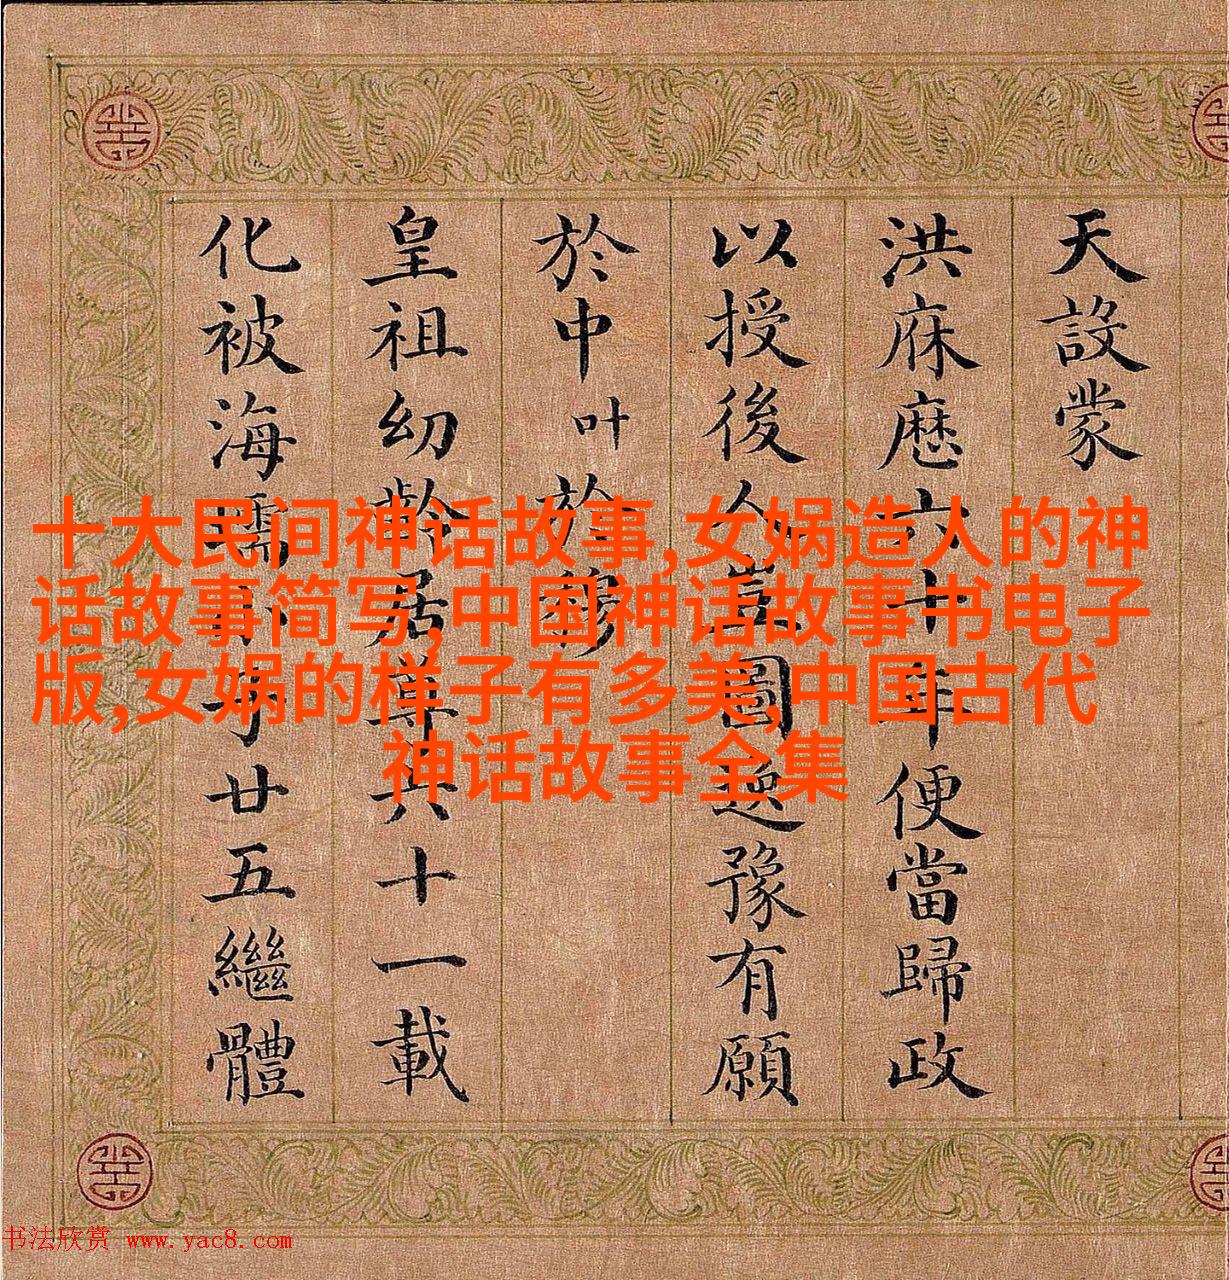 天設蒙
洪庥厯六十年便當歸政
以授後人豈圖逸豫有願
於中叶於穆
皇祖幼齡居尊六十一載
化被海壖小子廿五繼體
十大民间神话故事,女娲造人的神
话故事简写,中国神话故事书电子
版,女娲的样子有多美,中国古代
神话故事全集
书法欣赏 www.yac8.com